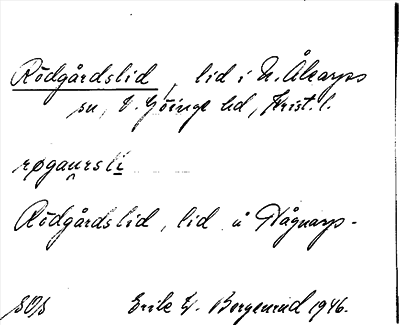 Rödgårdslid, lid i N. Åkarps
sn, V. Göinge hd, Krist. l.
røgaursli
Rödgårdslid, lid å Hågnarp-
SOS Erik W. Borgenrud 1946.